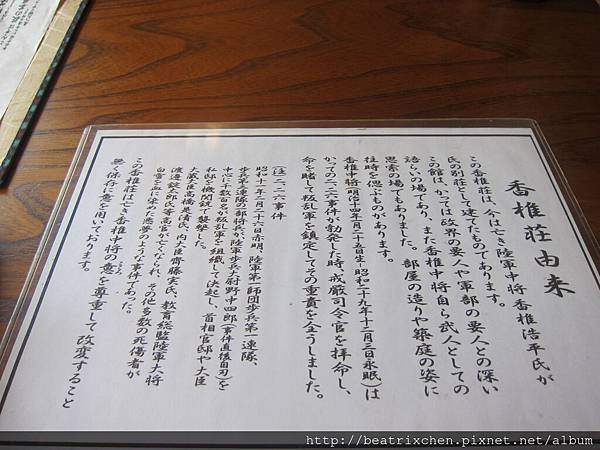 香椎荘由来
この香椎荘は、今はなき陸軍中将香椎浩平氏が
氏の別荘として建てたものであります。
この館は、かつては政界の要人や軍部の要人との深い
語らいの場であり、また香椎中将自ら武人としての
思索の場でもありました。部屋の造りや築庭の姿に
往時を偲ぶものがあります。
香椎中将(明治十四年一月二十五日生―昭和二十九年十二月三日永眠)は
かつての二・二六事件が勃発した時、戒厳司令官を拝命し、
命を賭して叛乱軍を鎮定してその重責を全うしました。
(注)二・二六事件
昭和十一年二月二十六日未明、陸軍第一師団歩兵第一連隊、
歩兵第三連隊の部将兵が、陸軍歩兵大尉野中四郎(事件直後自刃)を
中心に千数百名が叛乱軍を組織して決起し、首相官邸や大臣
私邸を機関銃で襲撃した。
大蔵大臣高橋是清氏、内大臣齊藤実氏、教育総監陸軍大将
渡邊錠太郎氏等高官で亡くなられ、その他多数の死傷者が
白雪を血に染めた悪夢のような事件であった。
この香椎荘は亡き香椎中将の意を尊重して改変すること
無く保存に意を用いております。
http://beatrixchen.pixnet.net/album